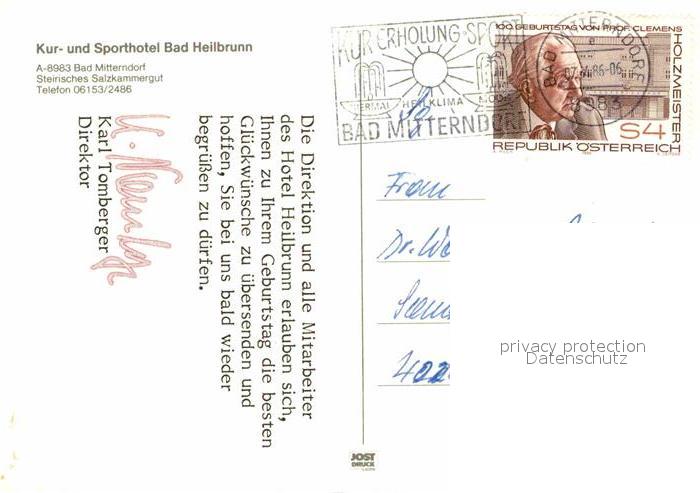 Kur- und Sporthotel Bad Heilbrunn
A-8983 Bad Mitterndorf
Steirisches Salzkammergut
Telefon 06153/2486
Die Direktion und alle Mitarbeiter
des Hotel Heilbrunn erlauben sich,
Ihnen zu Ihrem Geburtstag die besten
Glückwünsche zu übersenden und
hoffen, Sie bei uns bald wieder
begrüßen zu dürfen.
Karl Tomberger
Direktor
KUR·ERHOLUNG·SPORT
THERMAL HEILKLIMA MOOR
BAD MITTERNDORF
BAD MITTERNDORF
8983
100. GEBURTSTAG VON PROF. CLEMENS
HOLZMEISTER
S4
REPUBLIK ÖSTERREICH
Dr.
privacy protection
Datenschutz
JOST
DRUCK